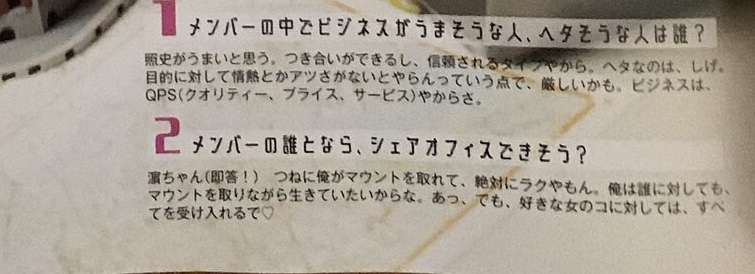 1 メンバーの中でビジネスがうまそうな人、ヘタそうな人は誰？
照史がうまいと思う。つき合いができるし、信頼されるタイプやから。ヘタなのは、しげ。
目的に対して情熱とかアツさがないとやらんっていう点で、厳しいかも。ビジネスは、
QPS(クオリティー、プライス、サービス)やからさ。
2 メンバーの誰となら、シェアオフィスできそう？
濵ちゃん(即答！)　つねに俺がマウントを取れて、絶対にラクやもん。俺は誰に対しても、
マウントを取りながら生きていたいからな。あっ、でも、好きな女のコに対しては、すべ
てを受け入れるで♡